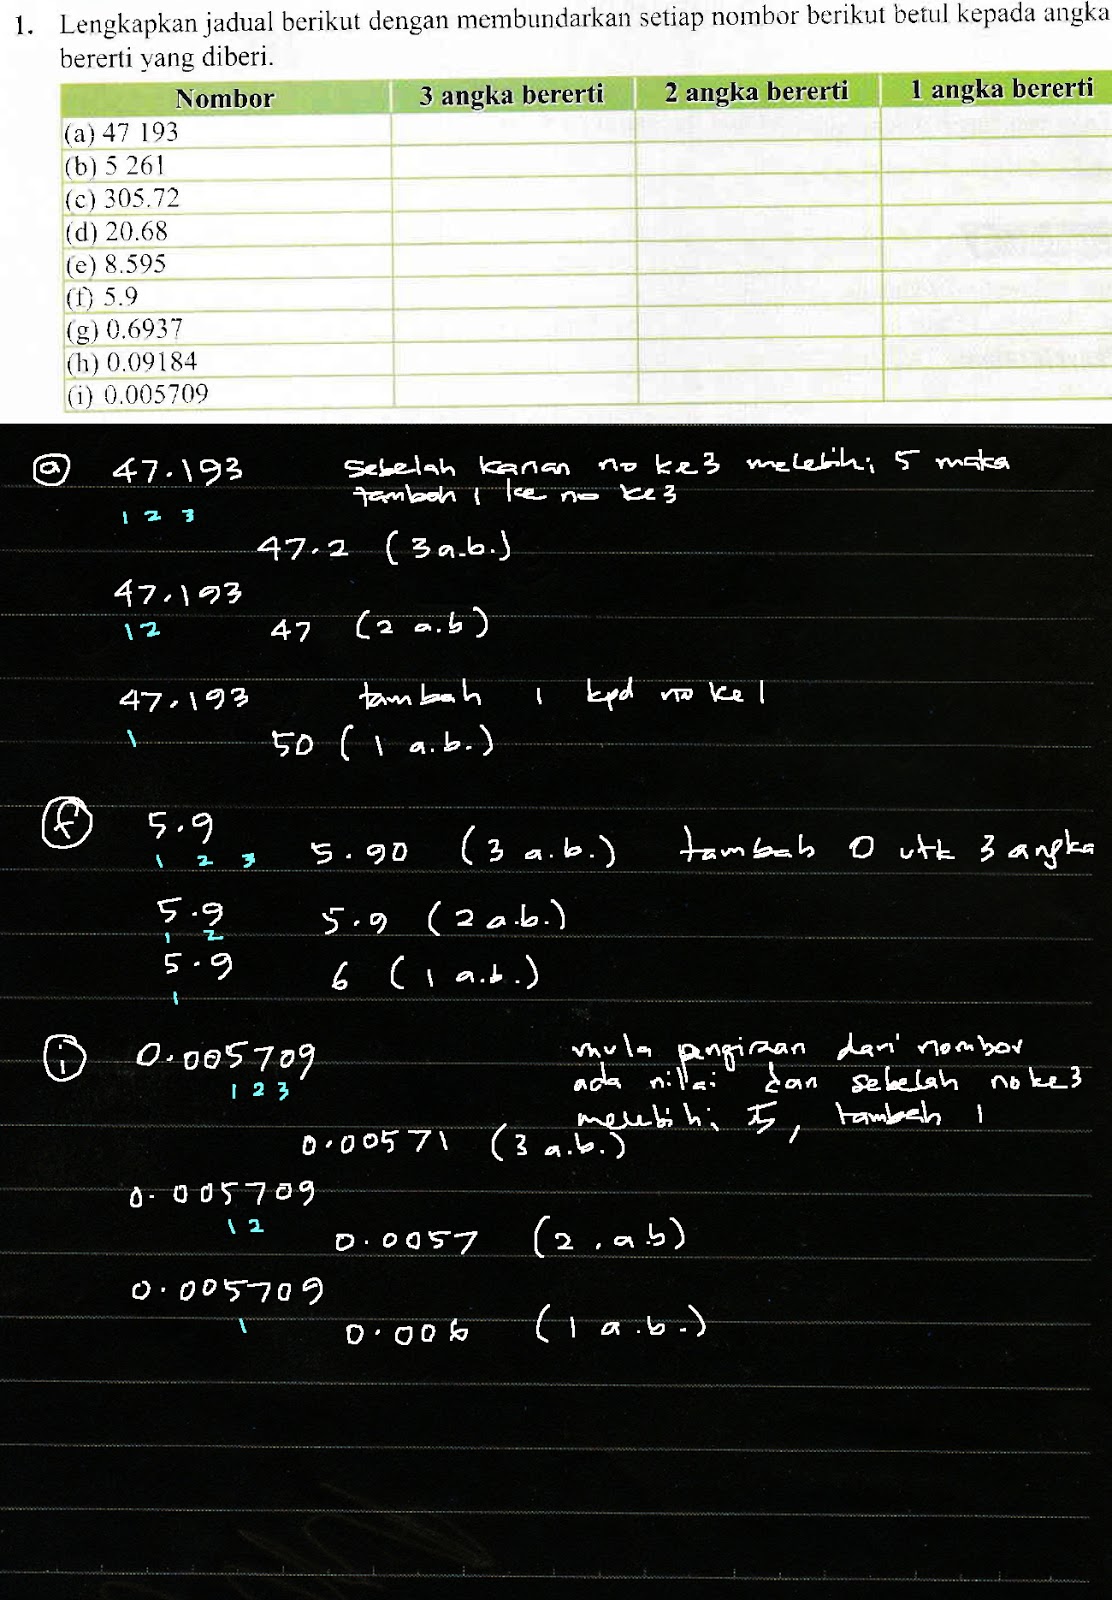 1. Lengkapkan jadual berikut dengan membundarkan setiap nombor berikut betul kepada angka
bererti yang diberi.
Nombor 3 angka bererti 2 angka bererti 1 angka bererti
(a) 47 193
(b) 5 261
(c) 305.72
(d) 20.68
(e) 8.595
(f) 5.9
(g) 0.6937
(h) 0.09184
(i) 0.005709
a 47.193 sebelah kanan no ke3 melebihi 5 maka
tambah 1 ke no ke3
1 2 3
47.2 (3 a.b.)
47.193
1 2
47 (2 a.b)
47.193 tambah 1 kpd no ke 1
1
50 (1 a.b.)
f 5.9
1 2 3
5.90 (3 a.b.) tambah 0 utk 3 angka
5.9 5.9 (2 a.b.)
1 2
5.9 6 (1 a.b.)
1
i 0.005709 mula pengiraan dari nombor
ada nilai dan sebelah no ke3
1 2 3
melebihi 5, tambah 1
0.00571 (3 a.b.)
0.005709
1 2
0.0057 (2.a.b)
0.005709
1
0.006 (1 a.b.)